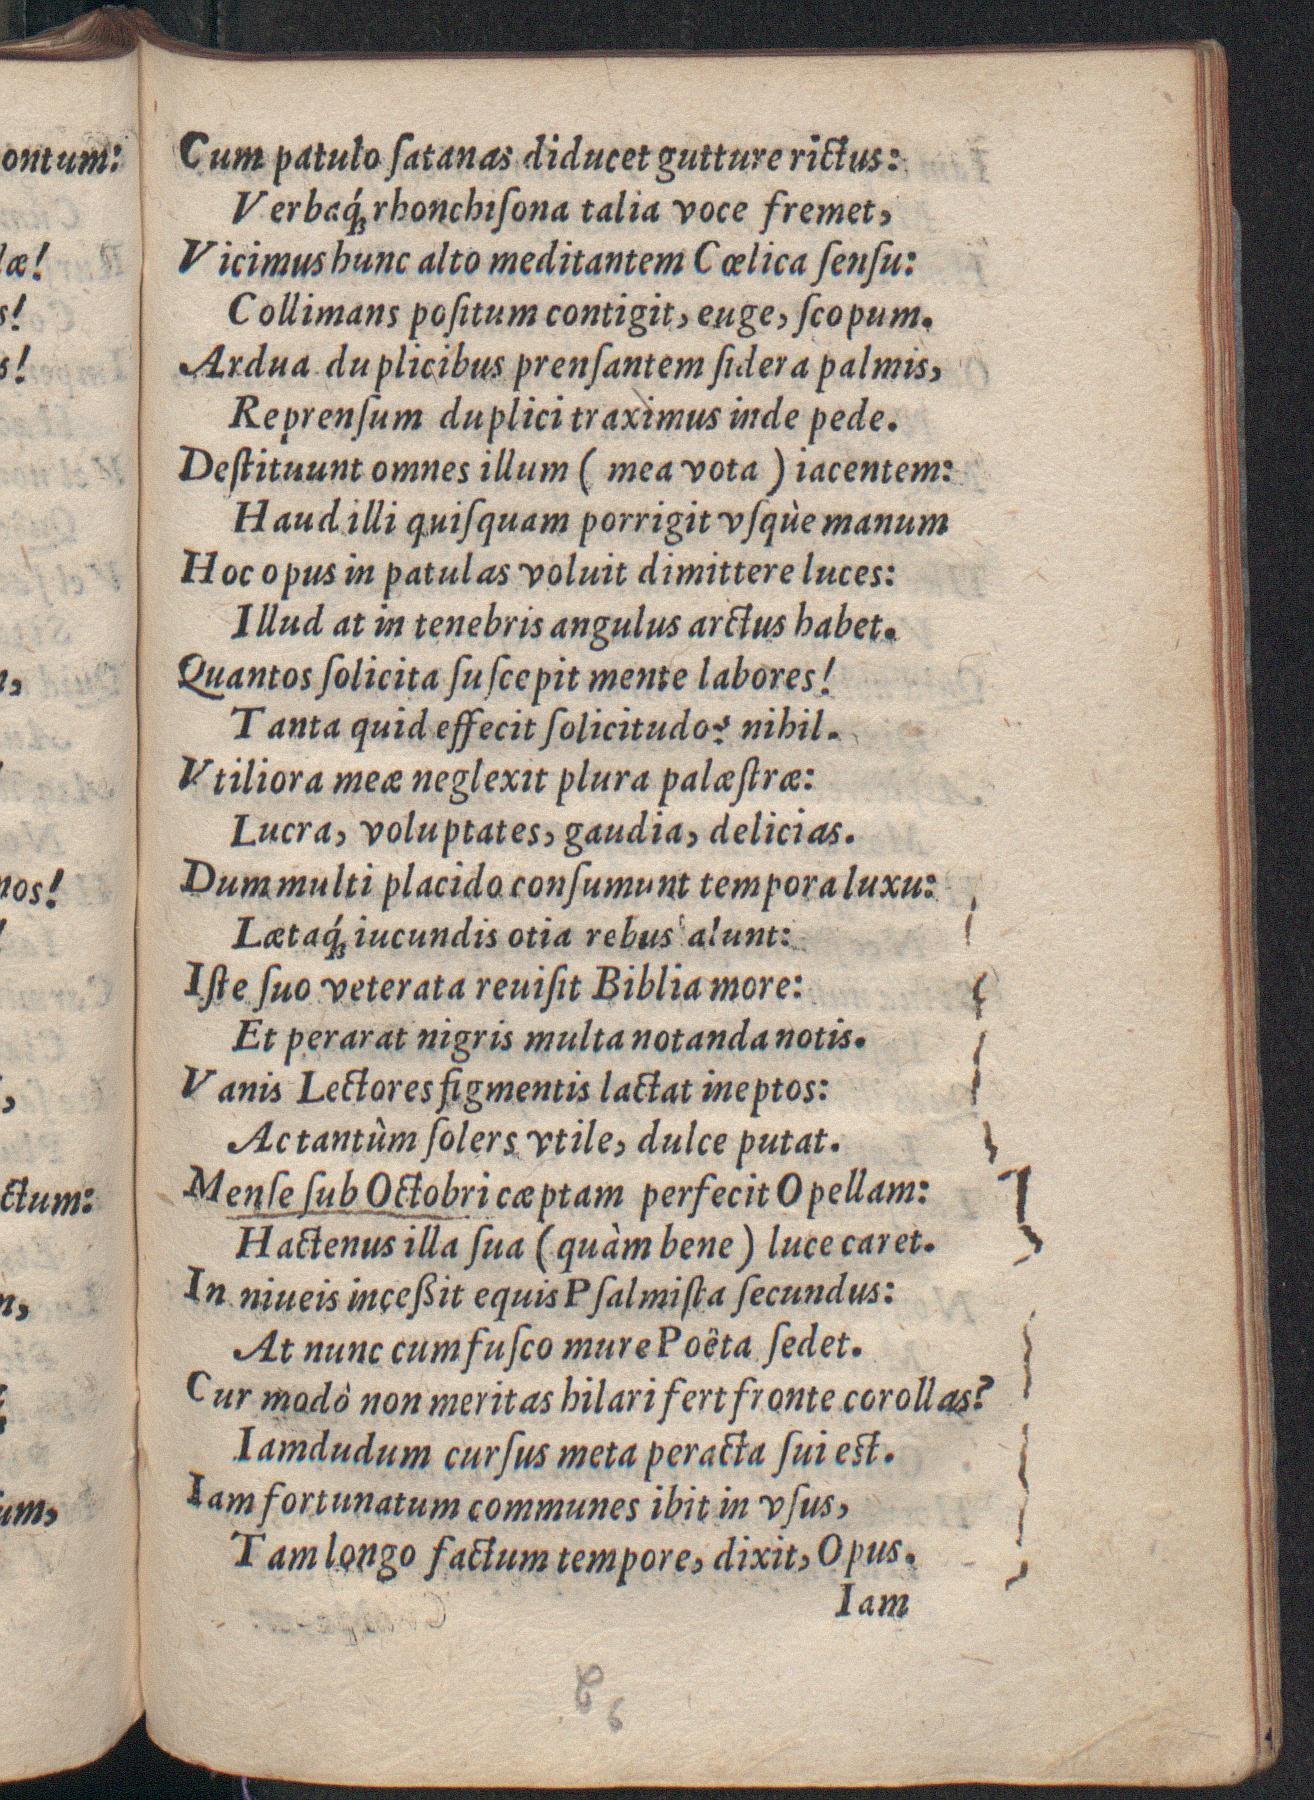 Cum patulo ſatanas diducet gutture rictus:
Verbaq́ꝫ rhonchiſona talia voce fremet,
Vicimus hunc alto meditantem Cœlica ſenſu:
Collimans poſitum contigit, euge, ſcopum.
Ardua duplicibus prenſantem ſidera palmis,
Reprenſum duplici traximus inde pede.
Deſtituunt omnes illum ( mea vota ) iacentem:
Haud illi quiſquam porrigit vſquè manum
Hoc opus in patulas voluit dimittere luces:
Illud at in tenebris angulus arctus habet.
Quantos ſolicita ſuſcepit mente labores!
Tanta quid effecit ſolicitudo? nihil.
Vtiliora meæ neglexit plura palæſtræ:
Lucra, voluptates, gaudia, delicias.
Dum multi placido conſumunt tempora luxu:
Lætaq́ꝫ iucundis otia rebus alunt:
Iſte ſuo veterata reuiſit Biblia more:
Et perarat nigris multa notanda notis.
Vanis Lectores figmentis lactat ineptos:
Ac tantùm ſolers vtile, dulce putat.
Menſe ſub Octobri cæptam perfecit Opellam:
Hactenus illa ſua (quàm bene) luce caret.
In niueis inceßit equis Pſalmiſta ſecundus:
At nunc cum fuſco mure Poëta ſedet.
Cur modò non meritas hilari fert fronte corollas?
Iamdudum curſus meta peracta ſui est.
Iam fortunatum communes ibit in vſus,
Tam longo factum tempore, dixit, Opus.
Iam
ontum:
læ!
s!
s!
nos!
ctum: